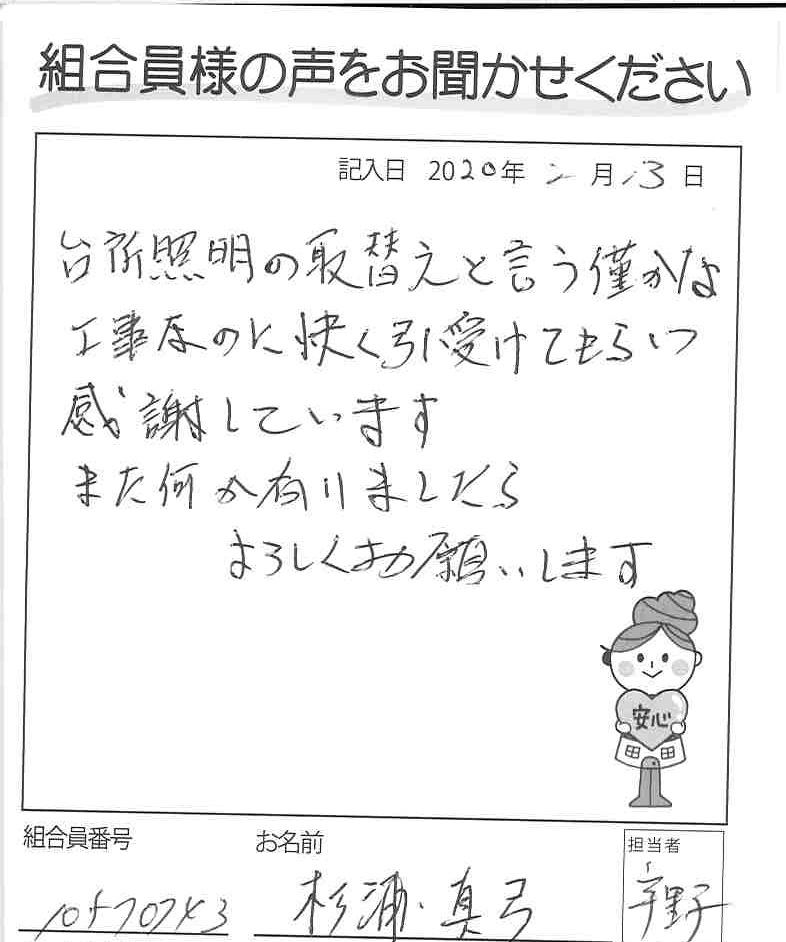 組合員様の声をお聞かせください
記入日 2020年 2月13日
台所照明の取替えと言う僅かな
工事なのに快く引受けてもらいつ
感謝しています
また何か有りましたら
よろしくお願いします
安心
組合員番号 お名前 担当者
10570743 杉浦 真弓